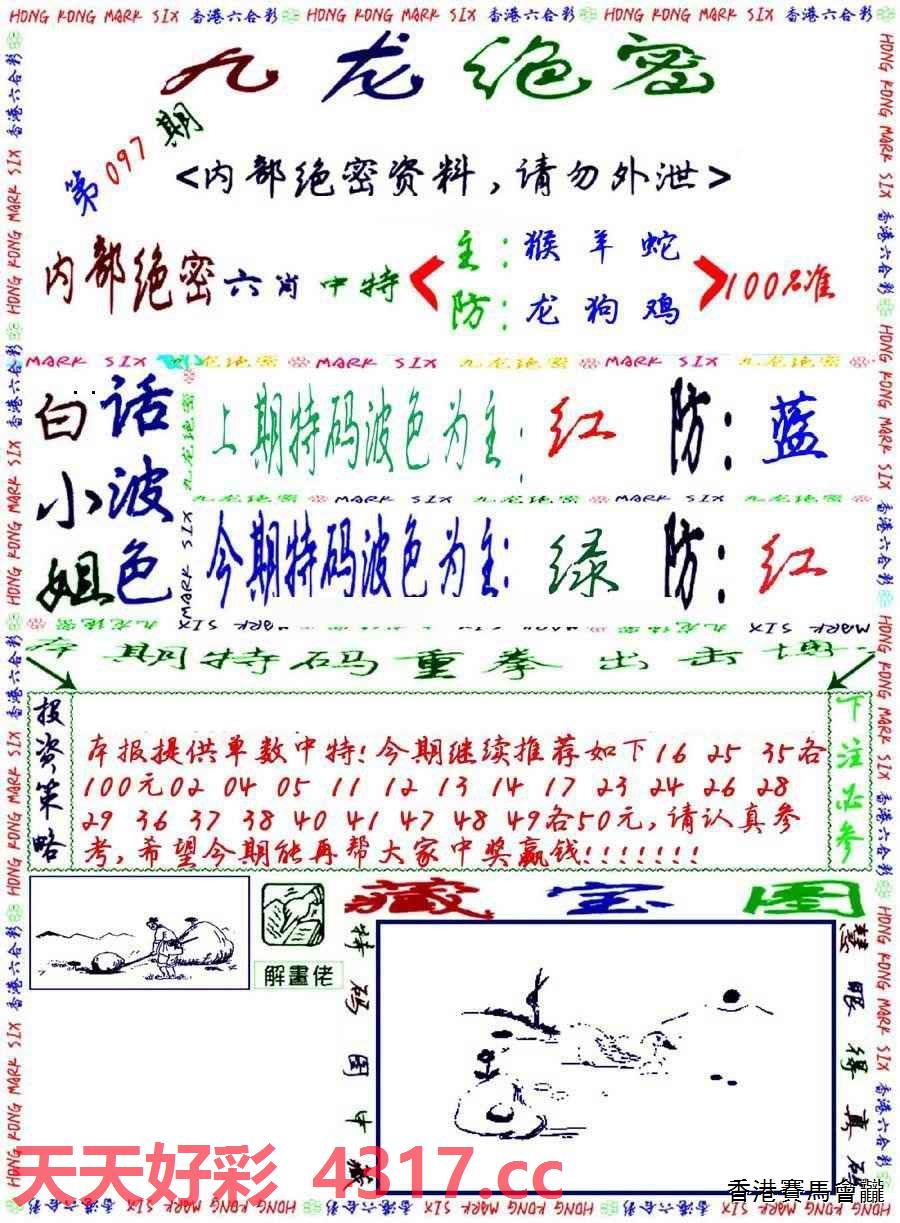 HONG KONG MARK SIX 香港六合彩 HONG KONG MARK SIX 香港六合彩 HONG KONG MARK SIX 香港六合彩
九龙绝密
第097期
<内部绝密资料,请勿外泄>
内部绝密六肖中特
主:猴羊蛇
防:龙狗鸡
100%准
MARK SIX 九龙绝密 MARK SIX 九龙绝密 MARK SIX 九龙绝密
白话
小波
姐色
上期特码波色为主:红 防:蓝
九龙绝密 MARK SIX 九龙绝密 MARK SIX 九龙绝密
今期特码波色为主:绿 防:红
本期特码重拳出击
投资策略
本报提供单数中特!今期继续推荐如下16 25 35各
100元02 04 05 11 12 13 14 17 23 24 26 28
29 36 37 38 40 41 47 48 49各50元,请认真参
考,希望今期能再帮大家中奖赢钱!!!!!!!
下注必参
藏宝图
解畫佬
特码图中藏
慧眼得真码
天天好彩 4317.cc
香港賽馬會